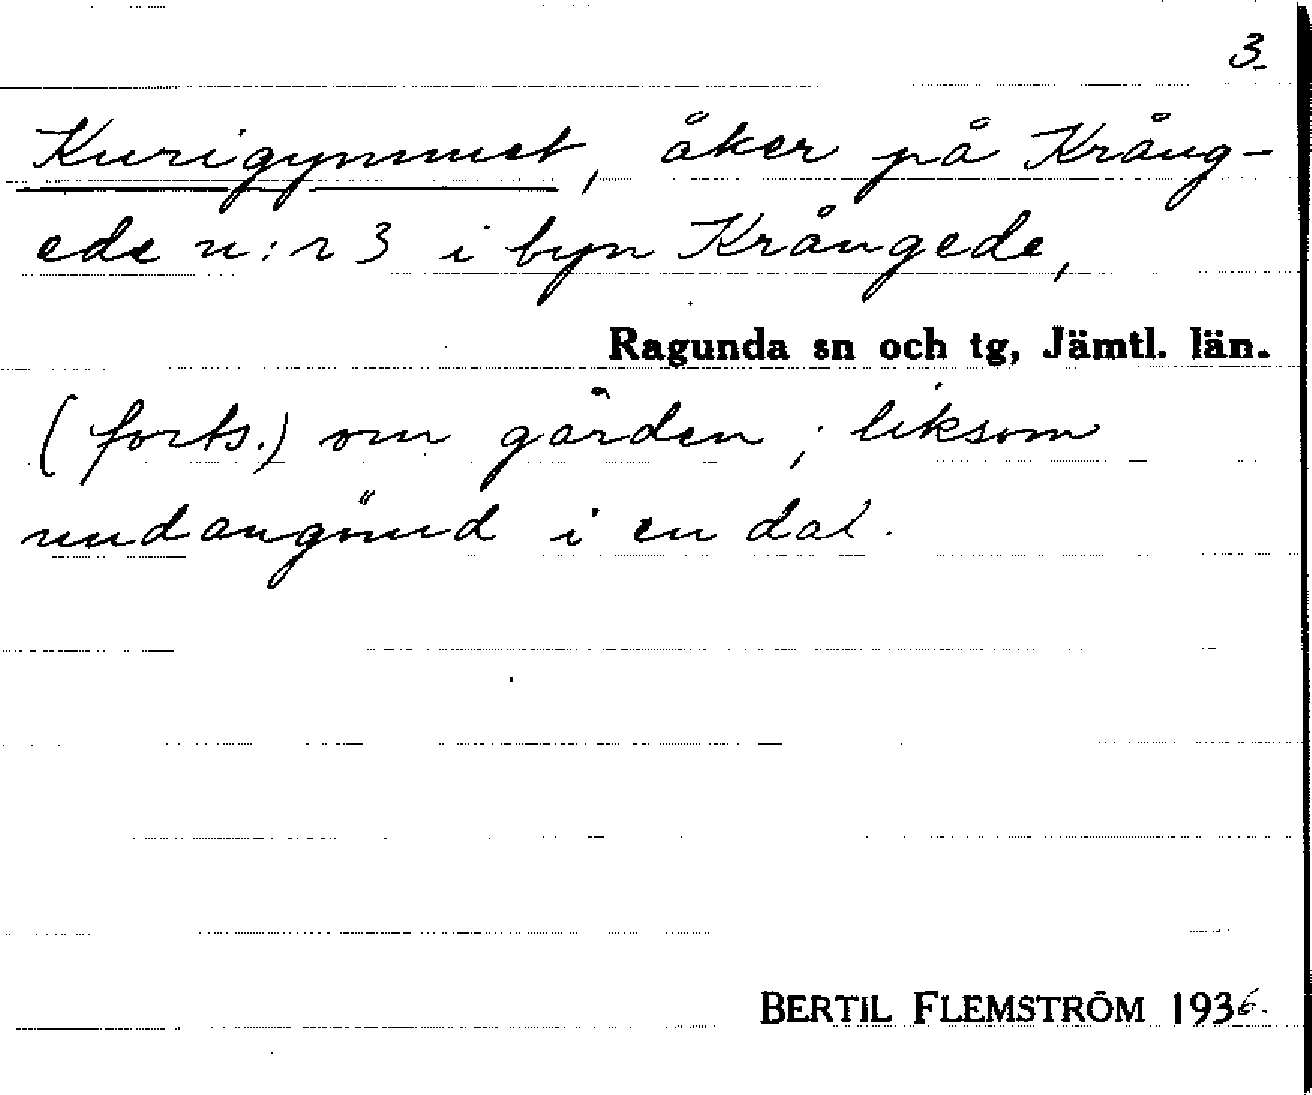 3.
Kurigymmet, åker på Krång-
ede n:r 3 i byn Krångede,
Ragunda sn och tg, Jämtl. län.
(forts.) om gården, liksom
undangömd i en dal.
BERTIL FLEMSTRÖM 1936.